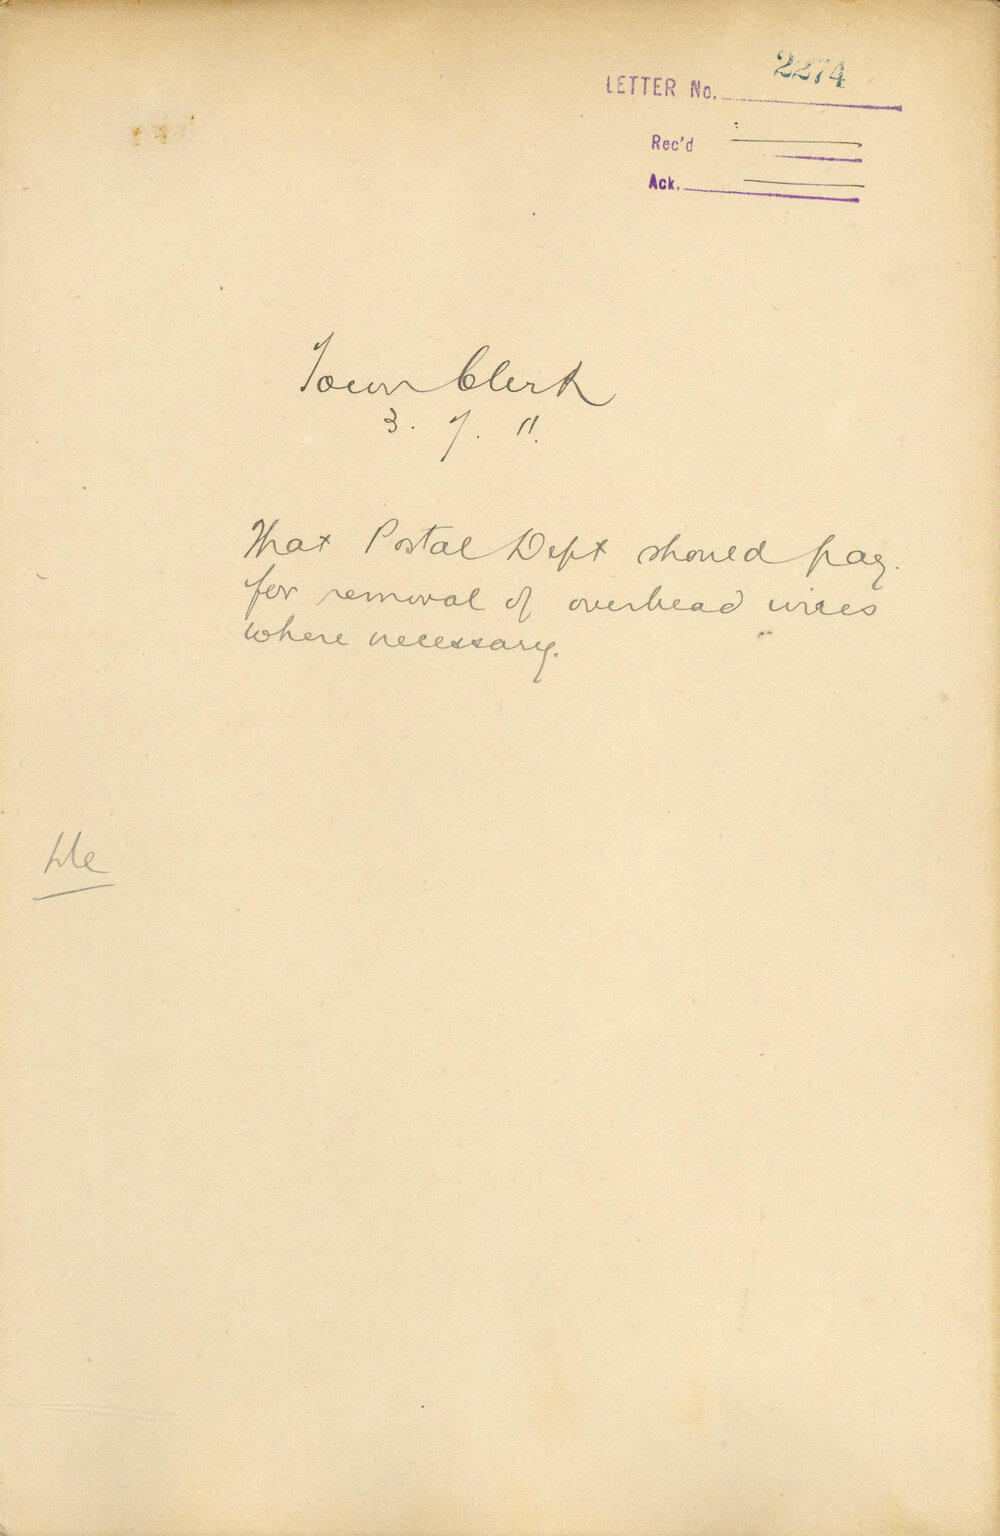 LETTER No. 2274
Rec'd
Ack.
Town Clerk
3. 7. 11.
That Postal Dept should pay.
for removal of overhead wires
where necessary.